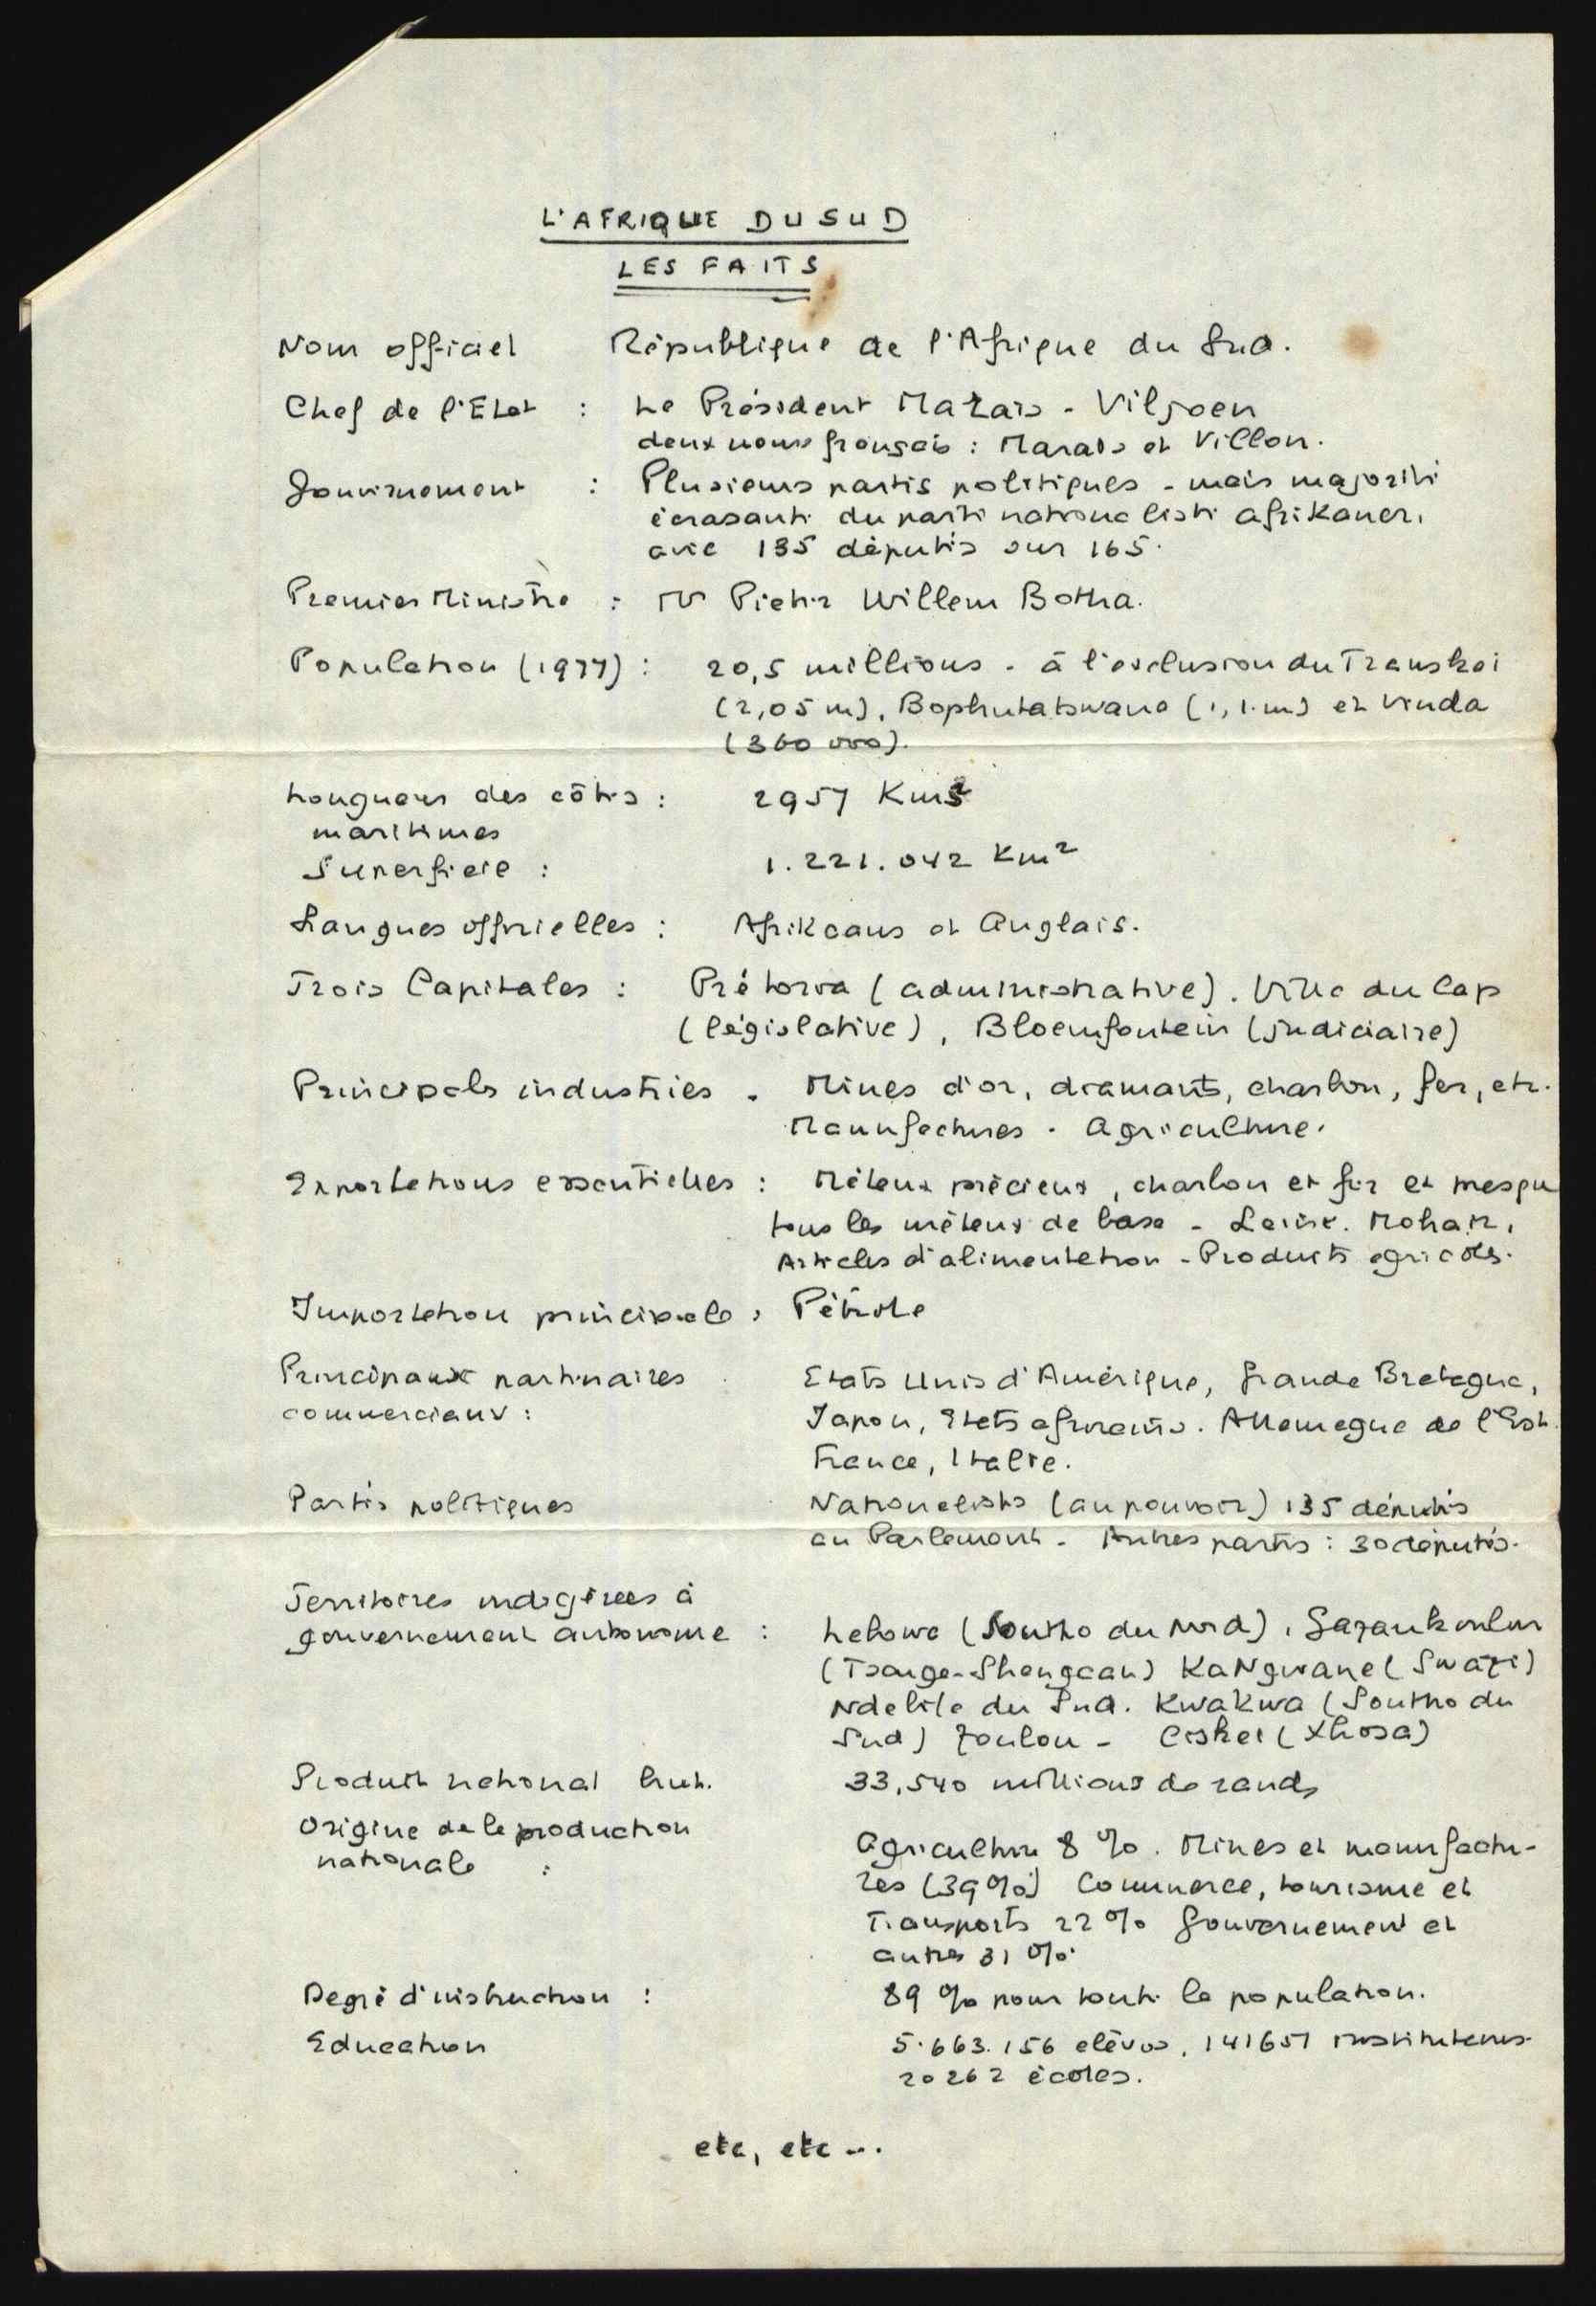 L'AFRIQUE DU SUD
LES FAITS
Nom officiel République de l'Afrique du Sud.
Chef de l'Etat : Le Président Marais - Viljoen
deux noms français : Marais et Villon.
Gouvernement : Plusieurs partis politiques - mais majorité
écrasante du parti nationaliste afrikaner,
avec 135 députés sur 165.
Premier Ministre : Mr Pieter Willem Botha.
Population (1977) : 20,5 millions - à l'exclusion du Transkei
(2,05 m), Bophutatswana (1,1.m) et Venda
(360 000).
Longueur des côtes : 2957 Kms
maritimes
Superficie : 1.221.042 Km²
Langues officielles : Afrikaans et Anglais.
Trois Capitales : Prétoria (administrative). Ville du Cap
(législative), Bloemfontein (judiciaire)
Principales industries . Mines d'or, diamants, charbon, fer, etc.
Manufactures . Agriculture.
Exportations essentielles : Métaux précieux, charbon et fer et presqu
tous les métaux de base - Laine. Mohair,
Articles d'alimentation - Produits agricoles.
Importation principale : Pétrole
Principaux partenaires Etats Unis d'Amérique, Grande Bretagne,
commerciaux : Japon, Etats africains. Allemagne de l'Est.
France, Italie.
Partis politiques Nationaliste (au pouvoir) 135 députés
au Parlement - Autres partis : 30 députés.
Territoires indigènes à
gouvernement autonome : Lebowa (Southo du Nord), Gazankoulou
(Tsonga-Shangaan) KaNgwane (Swazi)
Ndebele du Sud. KwaKwa (Southo du
Sud) Zoulou - Ciskei (Xhosa)
Produit national brut. 33,540 millions de rands
Origine de la production
nationale : Agriculture 8 %. Mines et manufactu-
res (39%) Commerce, tourisme et
Transports 22 % Gouvernement et
autres 31 %.
Degré d'instruction : 89 % pour toute la population.
Education 5.663.156 elèves, 141651 instituteurs.
20262 écoles.
etc, etc ...